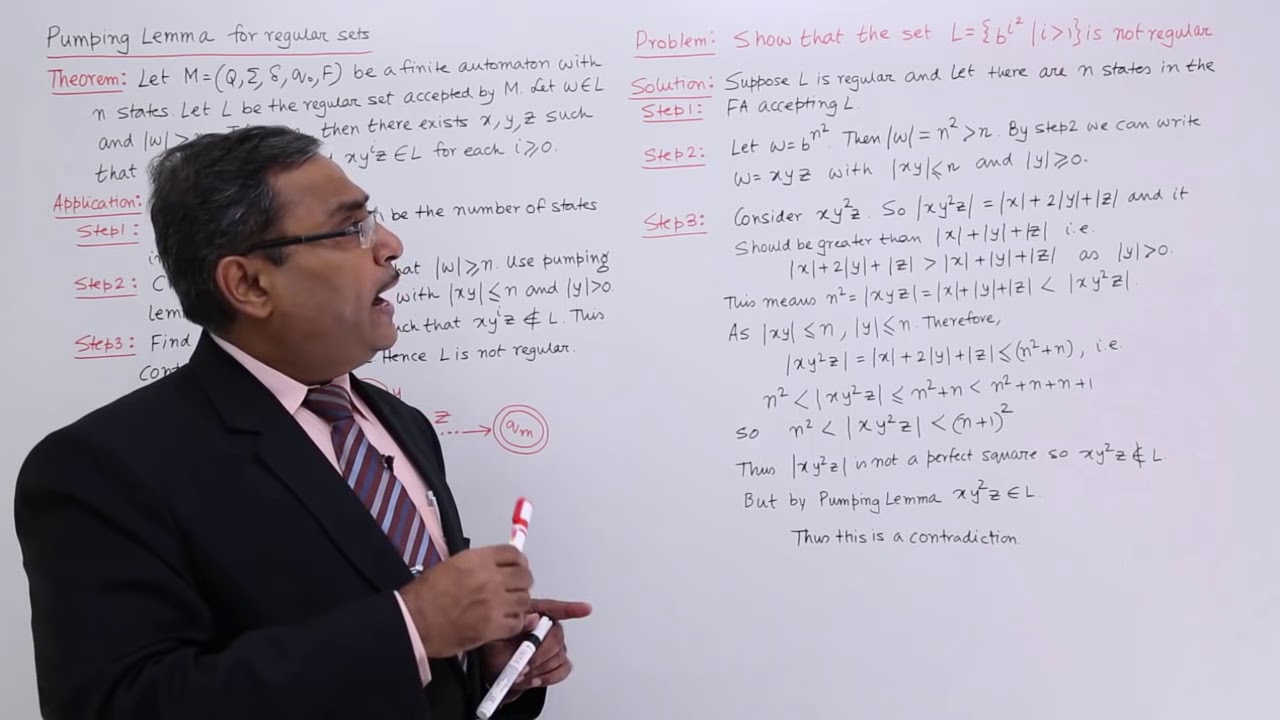 Pumping Lemma for regular sets
Theorem: Let M=(Q,Σ,δ,q₀,F) be a finite automaton with
n states. Let L be the regular set accepted by M. Let w∈L
and |w| then there exists x,y,z such
that xyⁱz∈L for each i⩾0.
Application: be the number of states
Step1:
Step2: C hat |w|⩾n. Use pumping
lem with |xy|⩽n and |y|>0.
Step3: Find uch that xyⁱz∉L. This
cont Hence L is not regular.
y
z
qₘ
Problem: Show that the set L={b^i² | i>1} is not regular
Solution: Suppose L is regular and Let there are n states in the
Step1: FA accepting L.
Step2: Let w=b^n². Then |w|=n²>n. By step2 we can write
w=xyz with |xy|⩽n and |y|⩾0.
Step3: Consider xy²z. So |xy²z|=|x|+2|y|+|z| and it
Should be greater than |x|+|y|+|z| i.e.
|x|+2|y|+|z|>|x|+|y|+|z| as |y|>0.
This means n²=|xyz|=|x|+|y|+|z|<|xy²z|.
As |xy|⩽n, |y|⩽n. Therefore,
|xy²z|=|x|+2|y|+|z|⩽(n²+n), i.e.
n²<|xy²z|⩽n²+n<n²+n+n+1
so n²<|xy²z|<(n+1)²
Thus |xy²z| is not a perfect square so xy²z∉L
But by Pumping Lemma xy²z∈L.
Thus this is a contradiction.